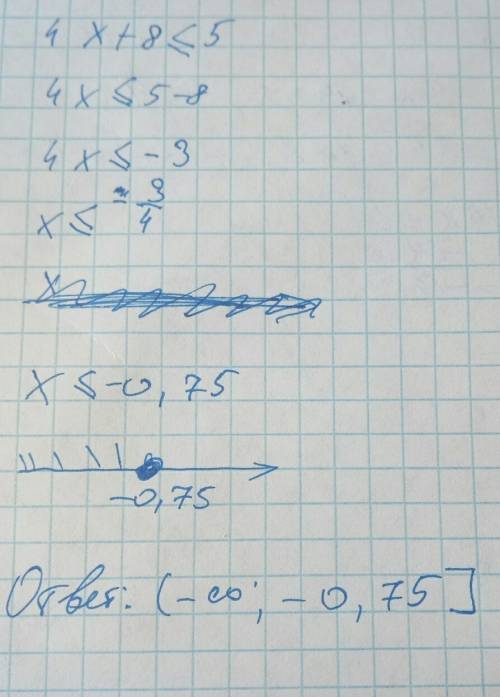 4x+8≤5
4x≤5-8
4x≤-3
x≤-3/4
x≤-0,75
-0,75
Ответ: (-∞; -0,75]